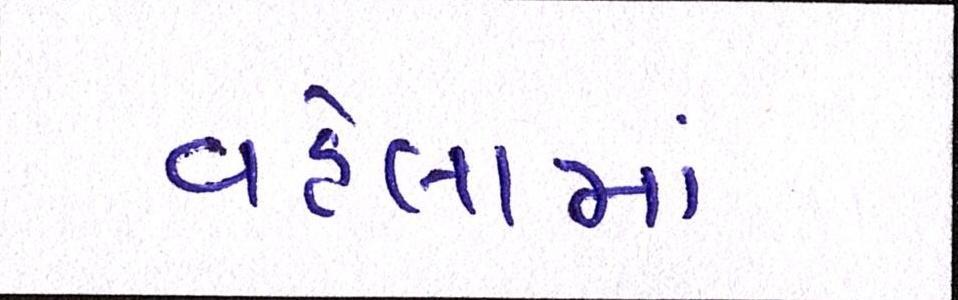 વહેલામાં